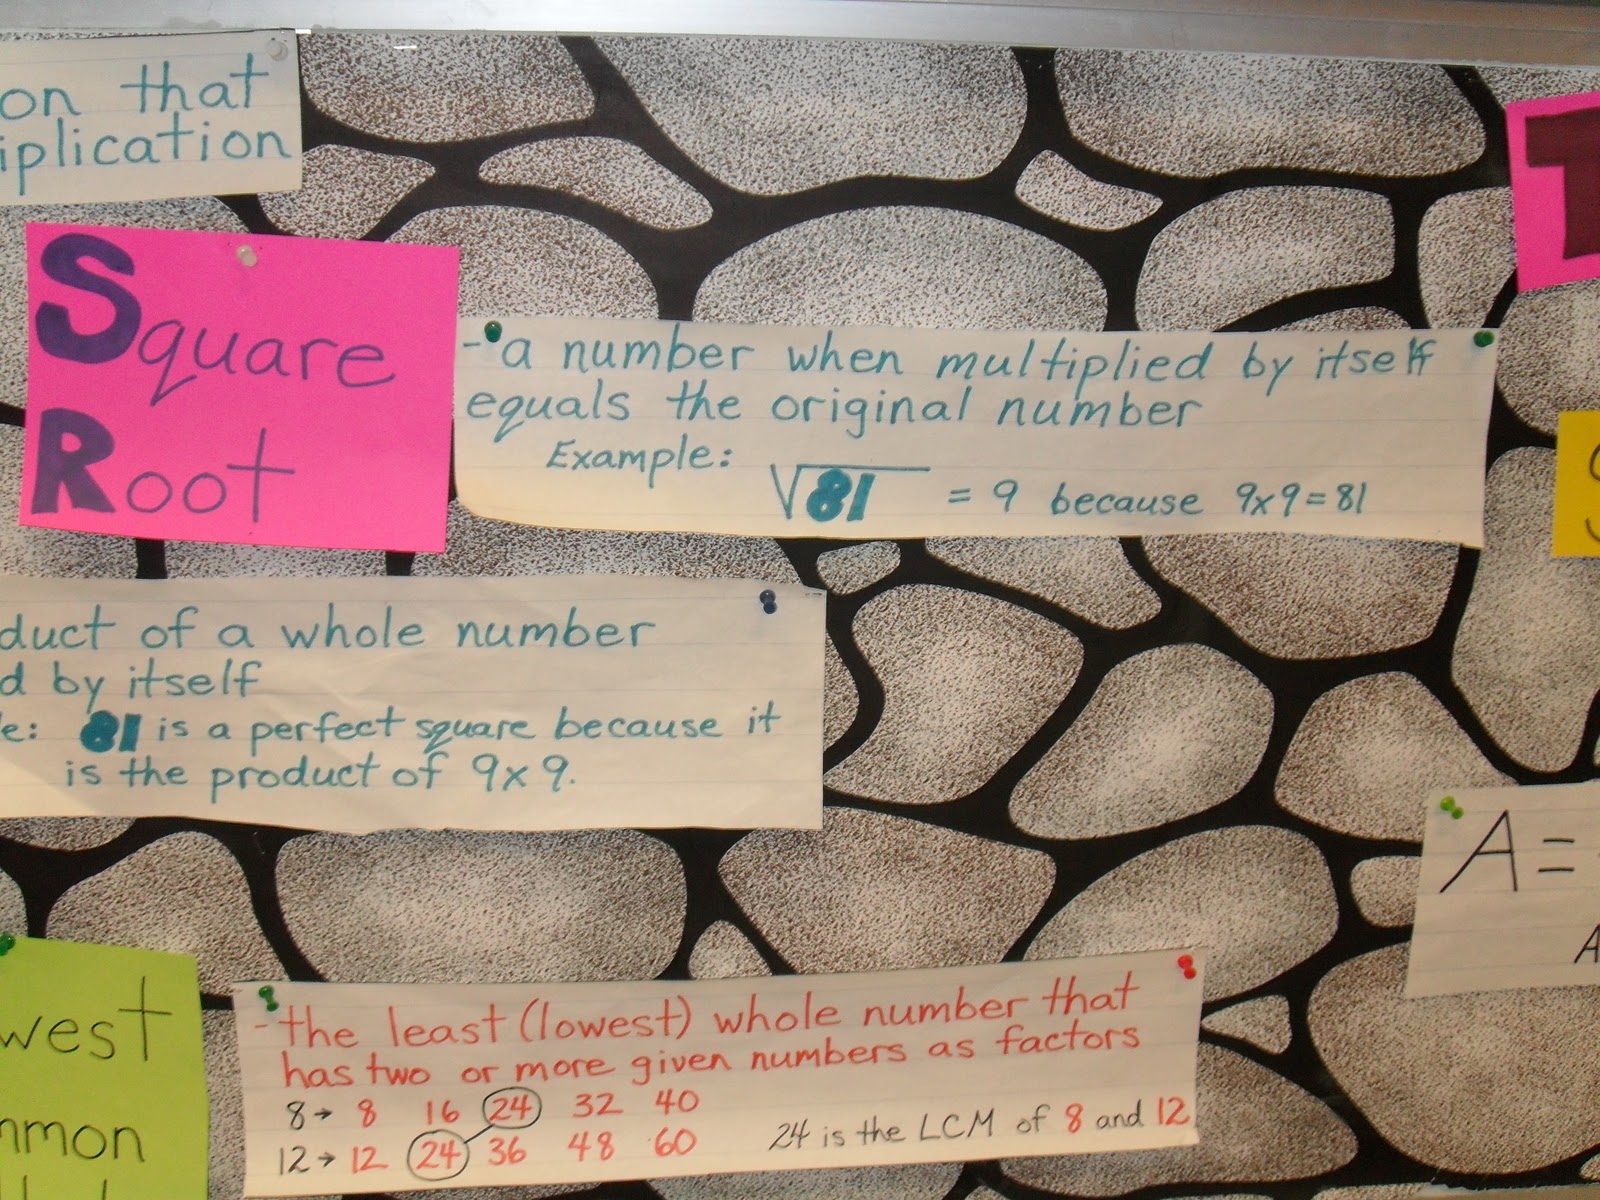 on that
iplication
Square
Root
- a number when multiplied by itself
equals the original number
Example:
√81 = 9 because 9x9=81
duct of a whole number
d by itself
e: 81 is a perfect square because it
is the product of 9x9.
A =
A
west
mmon
- the least (lowest) whole number that
has two or more given numbers as factors
8→ 8 16 24 32 40
12→ 12 24 36 48 60
24 is the LCM of 8 and 12